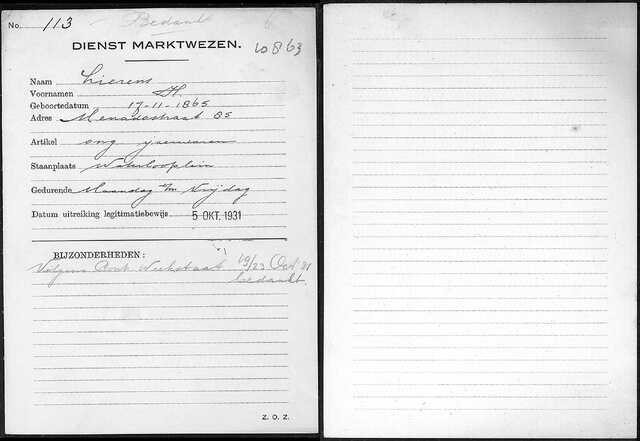 Bedankt
No. 113
DIENST MARKTWEZEN. 60863
Naam Lierens
Voornamen H.
Geboortedatum 17-11-1865
Adres Menadostraat 85
Artikel ong ijzerwaren
Staanplaats Waterlooplein
Gedurende Maandag t/m Vrijdag
Datum uitreiking legitimatiebewijs 5 OKT. 1931
BIJZONDERHEDEN:
Volgens Cont. Weekstaat 19/23 Oct 31
bedankt.
Z. O. Z.